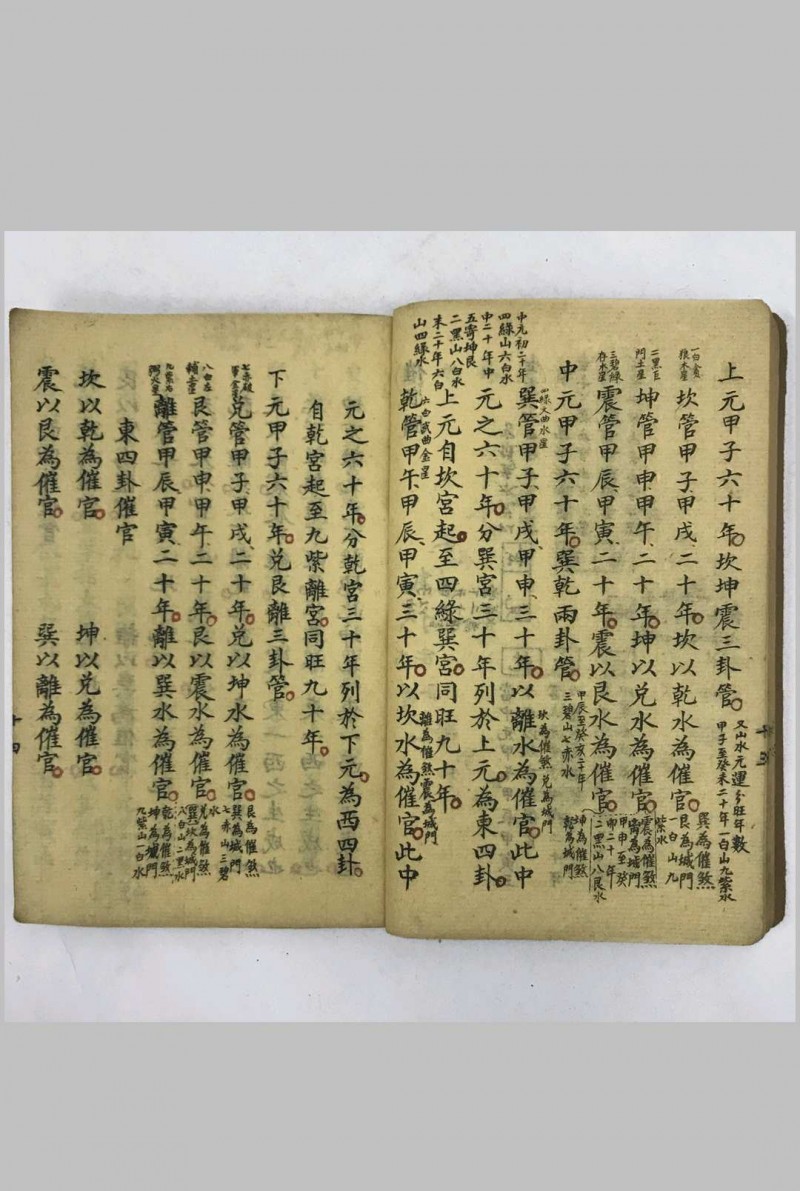 上元甲子六十年坎坤震三卦管
又山水元運多旺年數
甲子至癸未二十年一白山九紫水
一白貪
狼木星
坎管甲子甲戌二十年坎以乾水為催官
巽為催煞
艮為城門
二黑巨
門土星
坤管甲申甲午二十年坤以兌水為催官
震為催煞
三碧祿
存木星
震管甲辰甲寅二十年震以艮水為催官
中元甲子六十年巽乾兩卦管
甲辰至癸亥二十年
三碧山七赤水
四綠文曲水星
巽管甲子甲戌甲申三十年以離水為催官此中
坎為催煞兌為城門
中元初二十年
四綠山六白水
中二十年中
五寄坤艮
二黑山八白水
末二十年六白
山四綠水
元之六十年分巽宮三十年列於上元為東四卦
上元自坎宮起至四綠巽宮同旺九十年
六白武曲金星
乾管甲午甲辰甲寅三十年以坎水為催官此中
離為催煞震為城門
元之六十年分乾宮三十年列於下元為西四卦
自乾宮起至九紫離宮同旺九十年
下元甲子六十年兌艮離三卦管
兌管甲子甲戌二十年兌以坤水為催官
艮為催煞
巽為城門
七赤山三碧
水
八白左
輔土星
艮管甲申甲午二十年艮以震水為催官
兌為催煞
坎為城門
八白山二黑水
離管甲辰甲寅二十年離以巽水為催官
乾為催煞
坤為城門
九紫山一白水
東四卦催官
坎以乾為催官 坤以兌為催官
震以艮為催官 巽以離為催官
十四